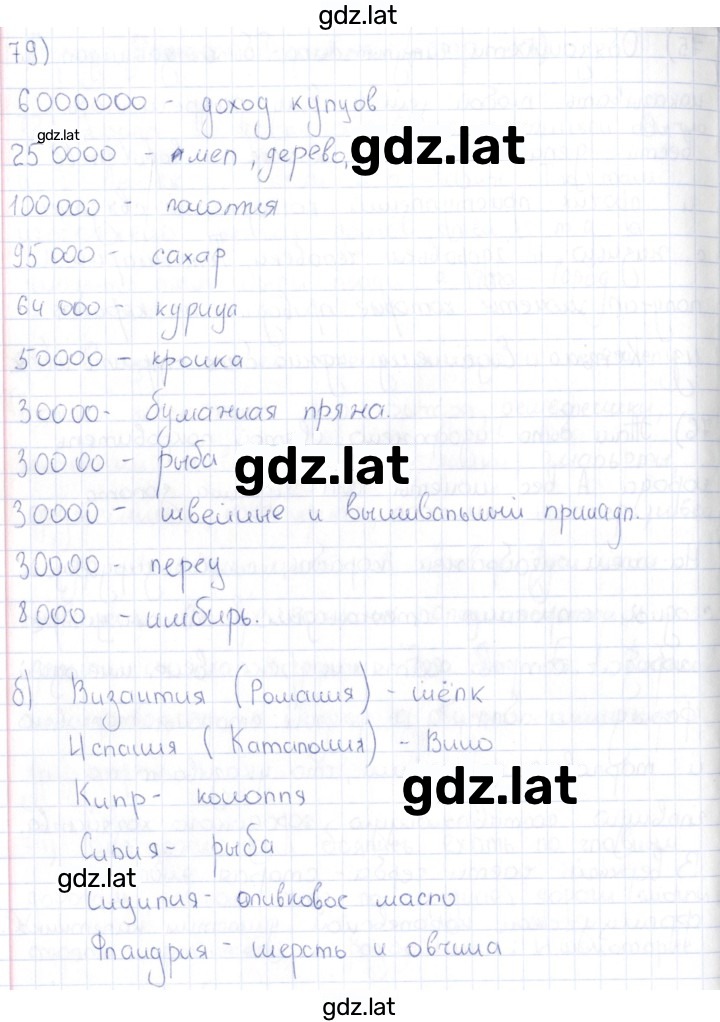 gdz.lat
79)
6000000 - доход купцов
gdz.lat
250000 - мел, дерево, gdz.lat
100000 - полотня
95 000 - сахар
64 000 - курица
50000 - кролка
30000 - бумажная пряжа.
30000 - рыба gdz.lat
30000 - швейные и вышивальный принадл.
30000 - перец
8000 - имбирь.
б) Византия (Романия) - шёлк
Испания (Каталония) - Вино
Кипр - колопля gdz.lat
Сирия - рыба
gdz.lat
Сицилия - оливковое масло
Фландрия - шерсть и овчина
gdz.lat